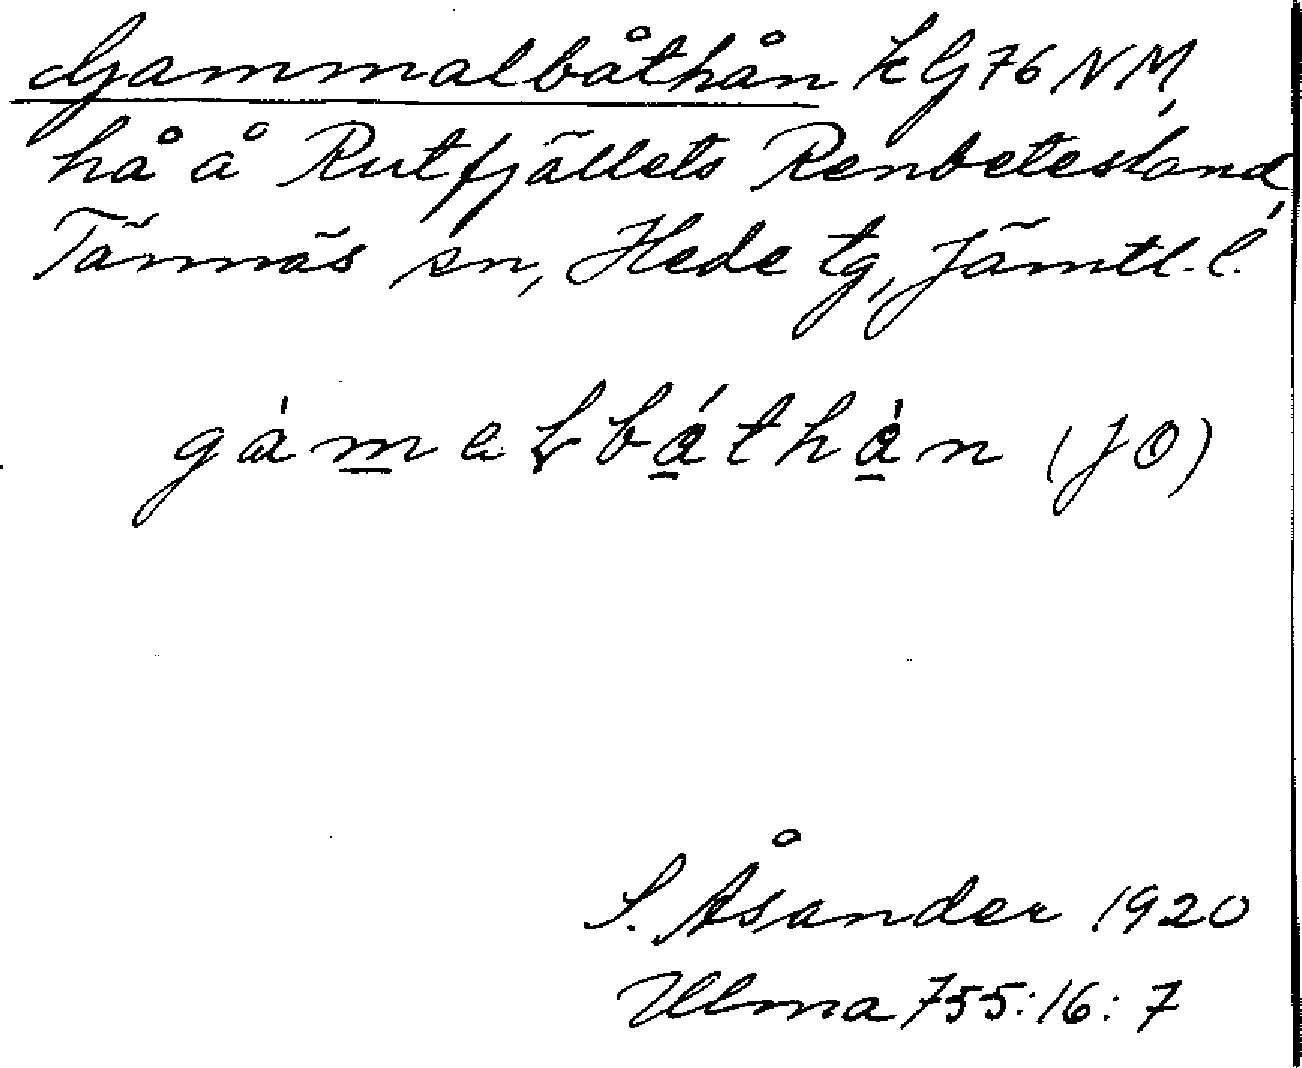 Gammalbåthån kG76NM,
hå å Rutfjällets Renbetesland,
Tännäs sn, Hede tg, Jämtl. l.
(JO)
S. Åsander 1920
Ulma 755:16:7